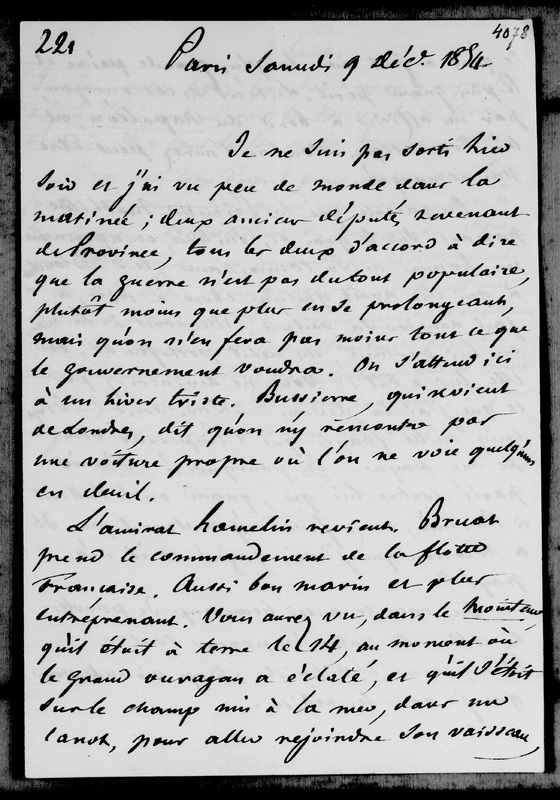 221
4078
Paris Samedi 9 Déc. 1854
Je ne suis pas sorti hier
soir et j'ai vu peu de monde dans la
matinée ; deux anciens députés revenant
de Province, tous les deux d'accord à dire
que la guerre n'est pas du tout populaire,
plutôt moins que plus en se prolongeant,
mais qu'on n'en fera pas moins tout ce que
le gouvernement voudra. On s'attend ici
à un hiver triste. Bussierre, qui revient
de Londres, dit qu'on n'y rencontre pas
une voiture propre où l'on ne voie quelqu'un
en deuil.
L'amiral hamelin revient. Bruat
prend le commandement de la flotte
Française. Aussi bon marin et plus
entreprenant. Vous aurez vu, dans le Moniteur,
qu'il était à terre le 14, au moment où
le grand ouragan a éclaté, et qu'il s'était
sur le champ mis à la mer, dans un
canot, pour aller rejoindre son vaisseau,